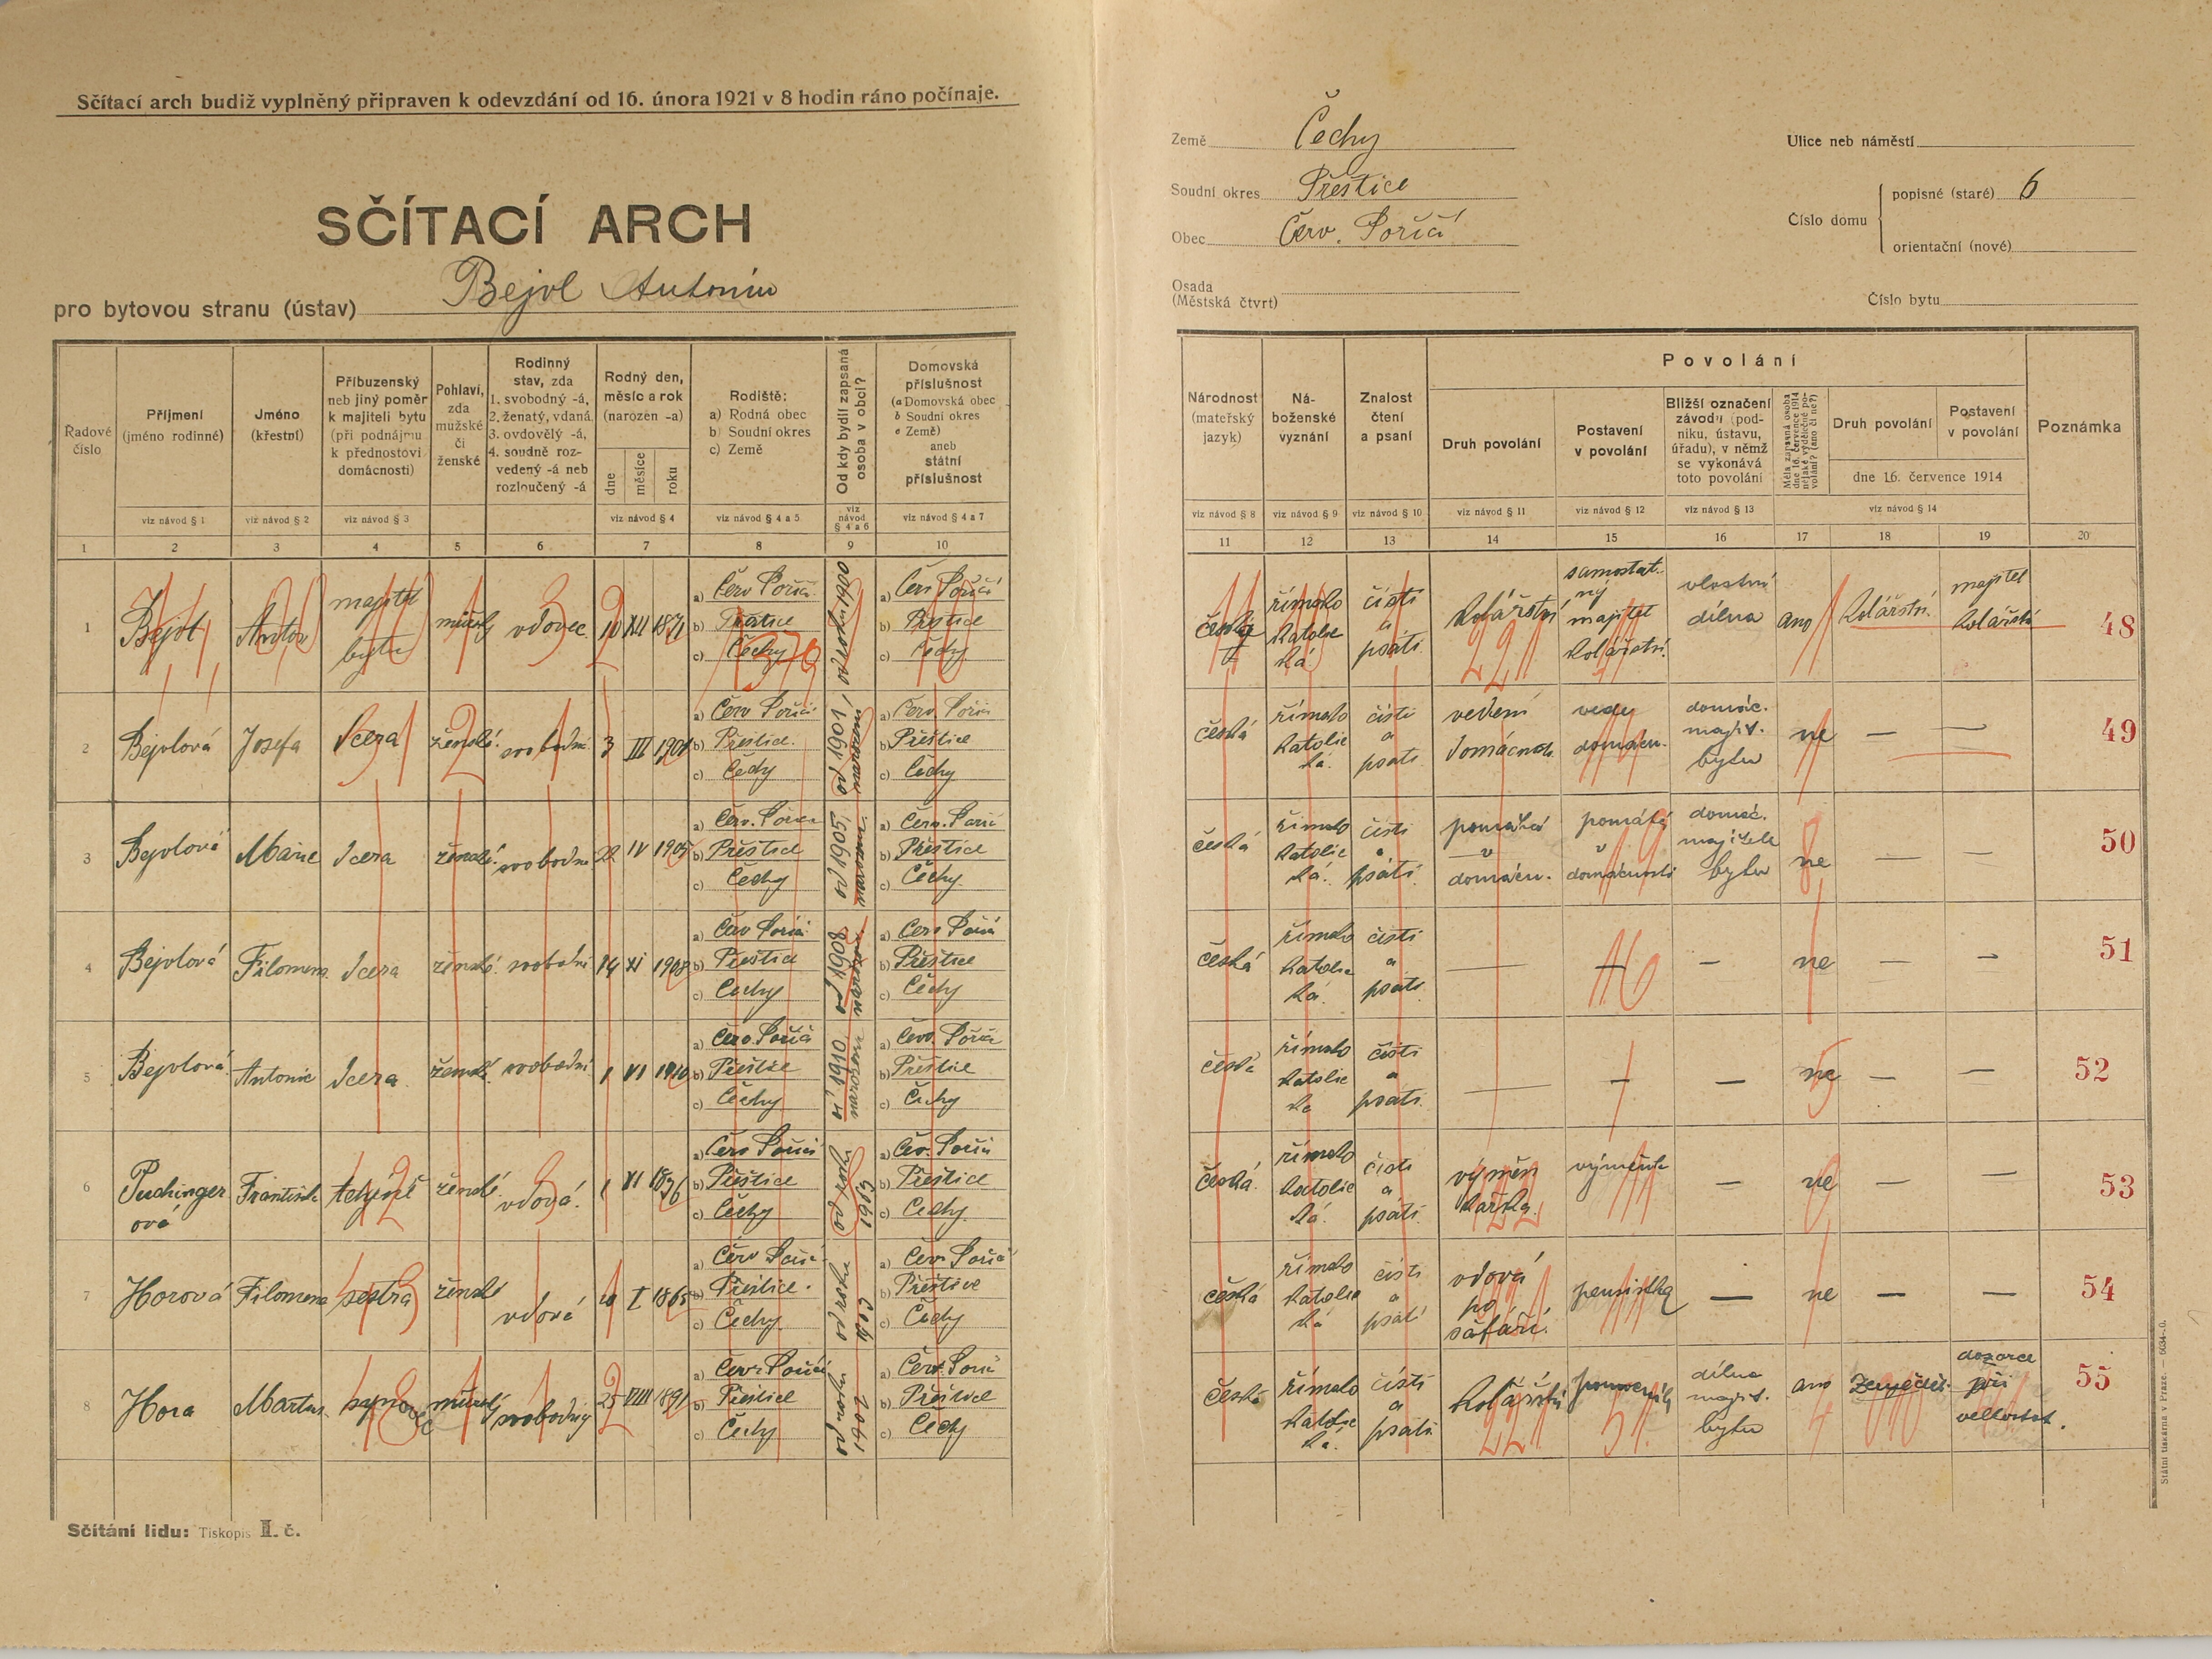 Sčítací arch budiž vyplněný připraven k odevzdání od 16. února 1921 v 8 hodin ráno počínaje.
SČÍTACÍ ARCH
pro bytovou stranu (ústav) Bejvl Antonín
Země Čechy
Soudní okres Přeštice
Obec Červ. Poříčí
Osada
(Městská čtvrt)
Ulice neb náměstí
Číslo domu
popisné (staré) 6
orientační (nové)
Číslo bytu
Řadové číslo
Příjmení (jméno rodinné)
Jméno (křestní)
Příbuzenský neb jiný poměr k majiteli bytu (při podnájmu k přednostovi domácnosti)
Pohlaví, zda mužské či ženské
Rodinný stav, zda 1. svobodný -á, 2. ženatý, vdaná, 3. ovdovělý -á, 4. soudně rozvedený -á neb rozloučený -á
Rodný den, měsíc a rok (narozen -a)
dne měsíce roku
Rodiště: a) Rodná obec b) Soudní okres c) Země
Od kdy bydlí zapsaná osoba v obci?
Domovská příslušnost (a Domovská obec b Soudní okres c Země) aneb státní příslušnost
viz návod § 1 viz návod § 2 viz návod § 3 viz návod § 4 viz návod § 4 a 5 viz návod § 4 a 6 viz návod § 4 a 7
1 2 3 4 5 6 7 8 9 10
Národnost (mateřský jazyk)
Náboženské vyznání
Znalost čtení a psaní
Povolání
Druh povolání
Postavení v povolání
Bližší označení závodu (podniku, ústavu, úřadu), v němž se vykonává toto povolání
Měla zapsaná osoba dne 16. července 1914 nějaké výdělečné povolání? (ano či ne?)
Druh povolání
Postavení v povolání
dne 16. července 1914
Poznámka
viz návod § 8 viz návod § 9 viz návod § 10 viz návod § 11 viz návod § 12 viz návod § 13 viz návod § 14
11 12 13 14 15 16 17 18 19 20
1 Bejvl Anton majitel bytu mužský vdovec 10 XII 1871 a) Červ Poříčí b) Přeštice c) Čechy a) Červ Poříčí b) Přeštice c) Čechy
česká římsko katolic ká čísti a psáti kolářství samostatný majitel kolářství vlastní dílna ano kolářství majitel kolářství 48
2 Bejvlová Josefa dcera ženské svobodná 3 III 1901 a) Červ Poříčí b) Přeštice c) Čechy od 1901 narozena a) Červ. Poříčí b) Přeštice c) Čechy
česká římsko katolic ká. čísti a psáti vedení domácnosti vede domácn. domác. majit. bytu ne — — 49
3 Bejvlová Marie dcera ženské svobodná 22 IV 1905 a) Červ. Poříčí b) Přeštice c) Čechy od 1905 narozena a) Červ. Poříčí b) Přeštice c) Čechy
česká římsko katolic ká. čísti a psáti pomáhá v domácn. pomáhá v domácnosti domác. majitele bytu ne — — 50
4 Bejvlová Filomena dcera ženské svobodná 14 XI 1908 a) Červ Poříčí b) Přeštice c) Čechy od 1908 narozena a) Červ Poříčí b) Přeštice c) Čechy
česká římsko katolic ká. čísti a psáti — — — ne — — 51
5 Bejvlová Antonie dcera ženské svobodná 1 VI 1910 a) Červ. Poříčí b) Přeštice c) Čechy od 1910 narozena a) Červ. Poříčí b) Přeštice c) Čechy
česká římsko katolic ká čísti a psáti — — — ne — — 52
6 Puchinger ová Františka tchýně ženské vdova. 1 XI 1836 a) Červ Poříčí b) Přeštice c) Čechy 1905 a) Červ. Poříčí b) Přeštice c) Čechy
česká římsko katolic ká. čísti a psáti výměn kářka — ne — — 53
7 Horová Filomena sestra ženské vdová I 1865 a) Červ Poříčí b) Přeštice c) Čechy a) Červ. Poříčí b) Přeštice c) Čechy
česká římsko katolic ká čísti a psáti vdová po šafáři. pensistka — ne — — 54
8 Hora Martin synovec mužský svobodný 25 VIII 1891 a) Červ. Poříčí b) Přeštice c) Čechy 1902 a) Červ. Poříčí b) Přeštice c) Čechy
česká římsko katolic ká. čísti a psáti kolářství pomocník dílna majit. bytu ano Zeměděl. dozorce při velkostat. 55
Sčítání lidu: Tiskopis I. č.
Státní tiskárna v Praze. — 5034-0.